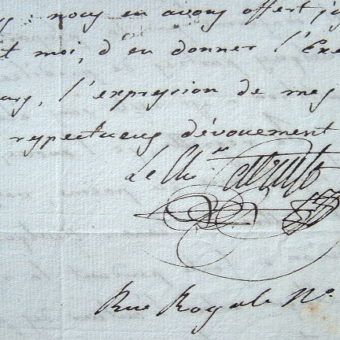 nous en avons offert
moi, d'en donner l'Exe
l'expression de mes
respectueux dévouement
Le Ch.er
Rue Royale N°.